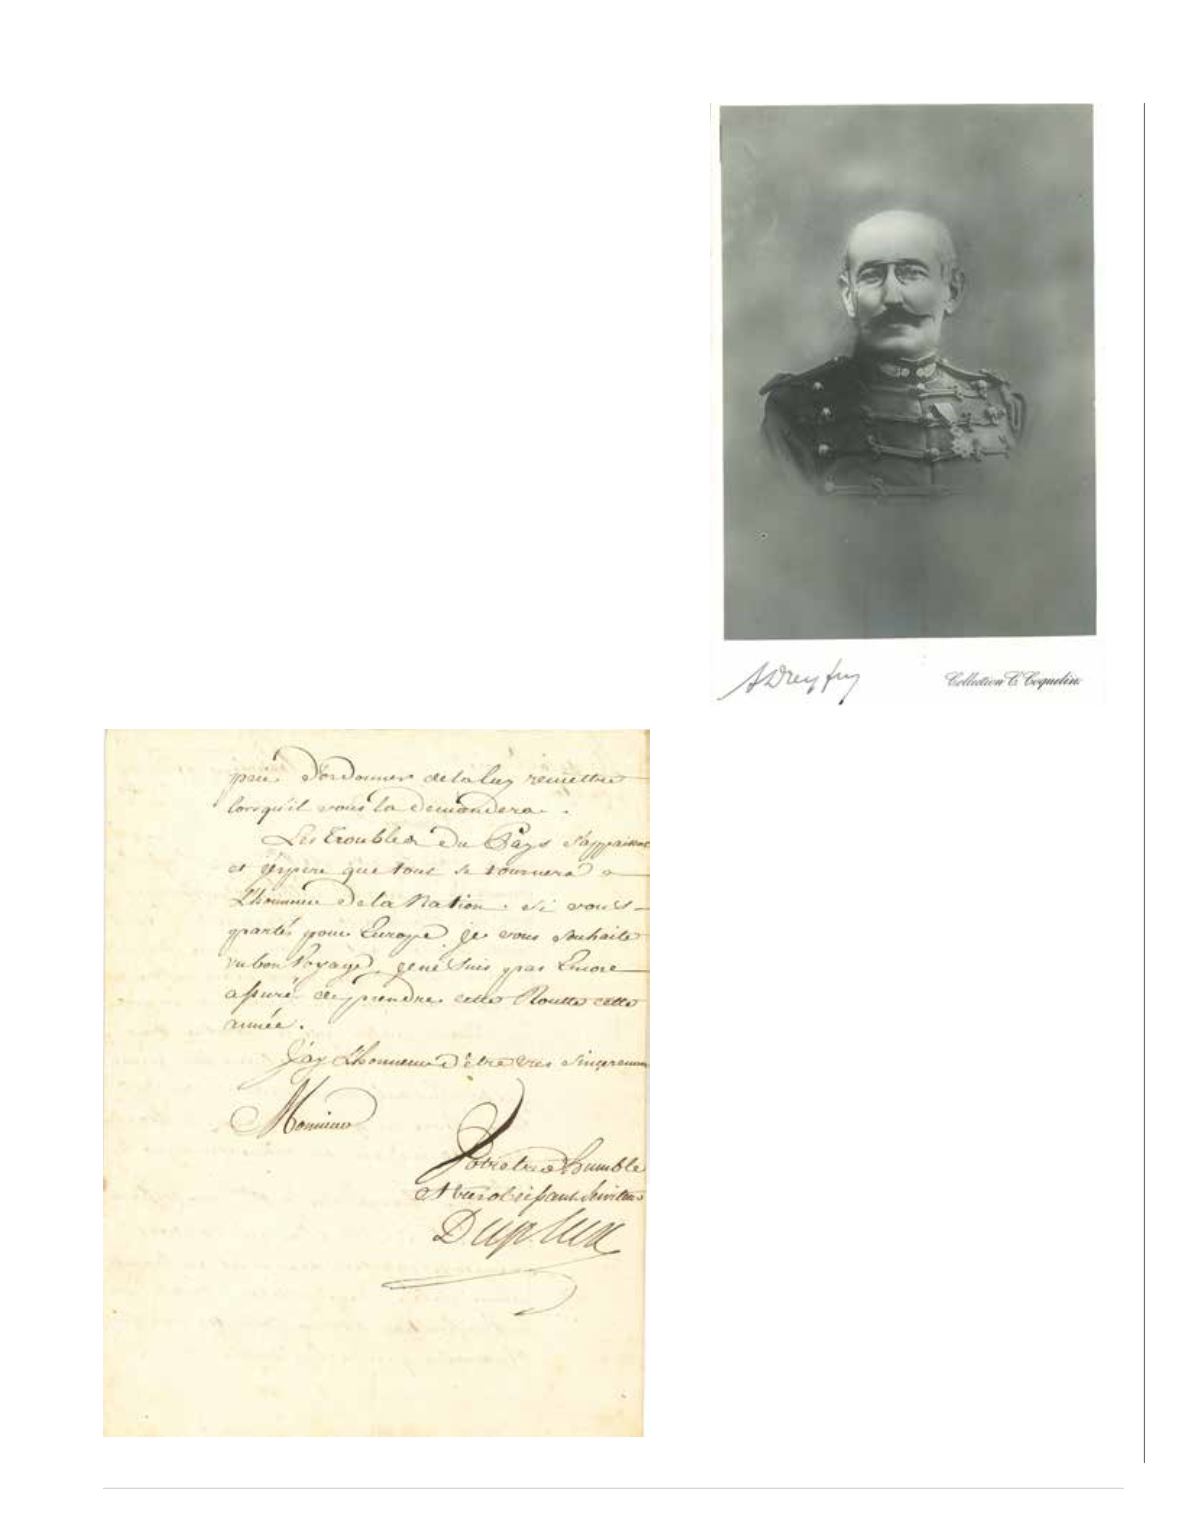 A Dreyfus
Collection C. Coquelin.
prie d'ordonner de la luy remettre
lorsqu'il vous la demandera.
Les Troubles du Pays s'appaisent
et j'espere que tout se tournera a
L'honneur de la Nation. Si vous
partés pour Europe je vous souhaite
un bon Voyage, je ne suis pas Encore
assuré de prendre cette Routte cette
année.
J'ay L'honneur d'être tres sincerement
Monsieur
Votre tres humble
et tres obeissant serviteur
Dupleix